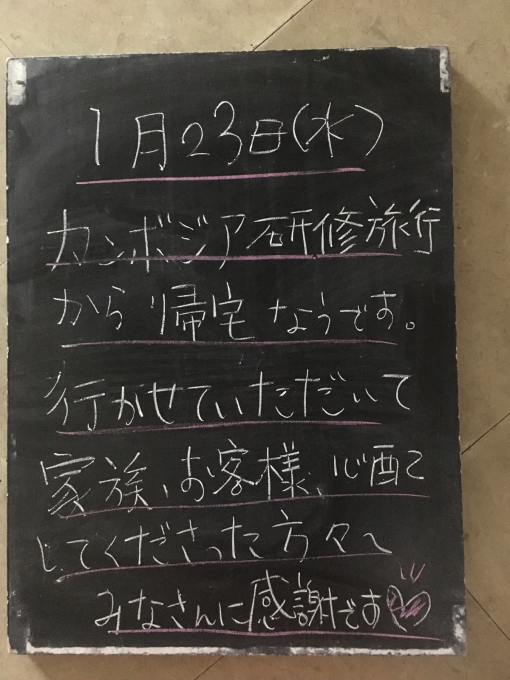 1月23日(水)
カンボジア研修旅行
から帰宅なうです。
行かせていただいて
家族、お客様、心配
してくださった方々へ
みなさんに感謝です